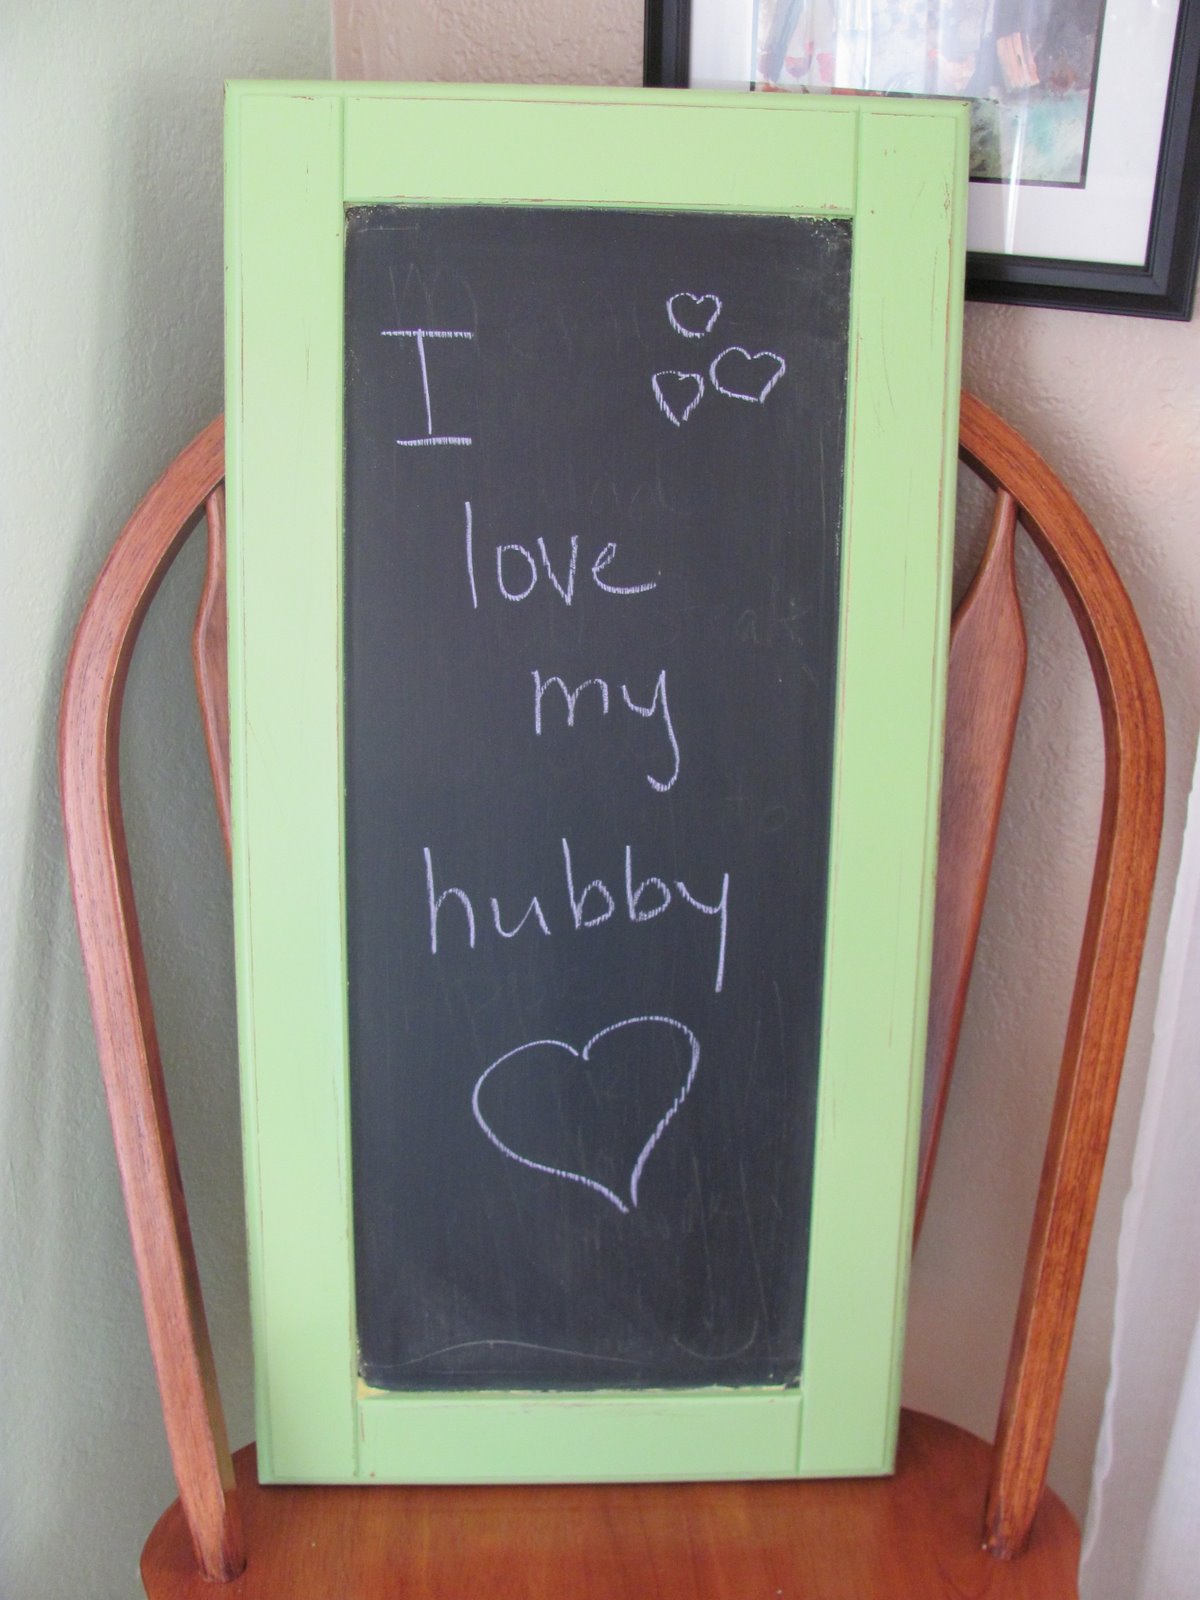 I
love
my
hubby